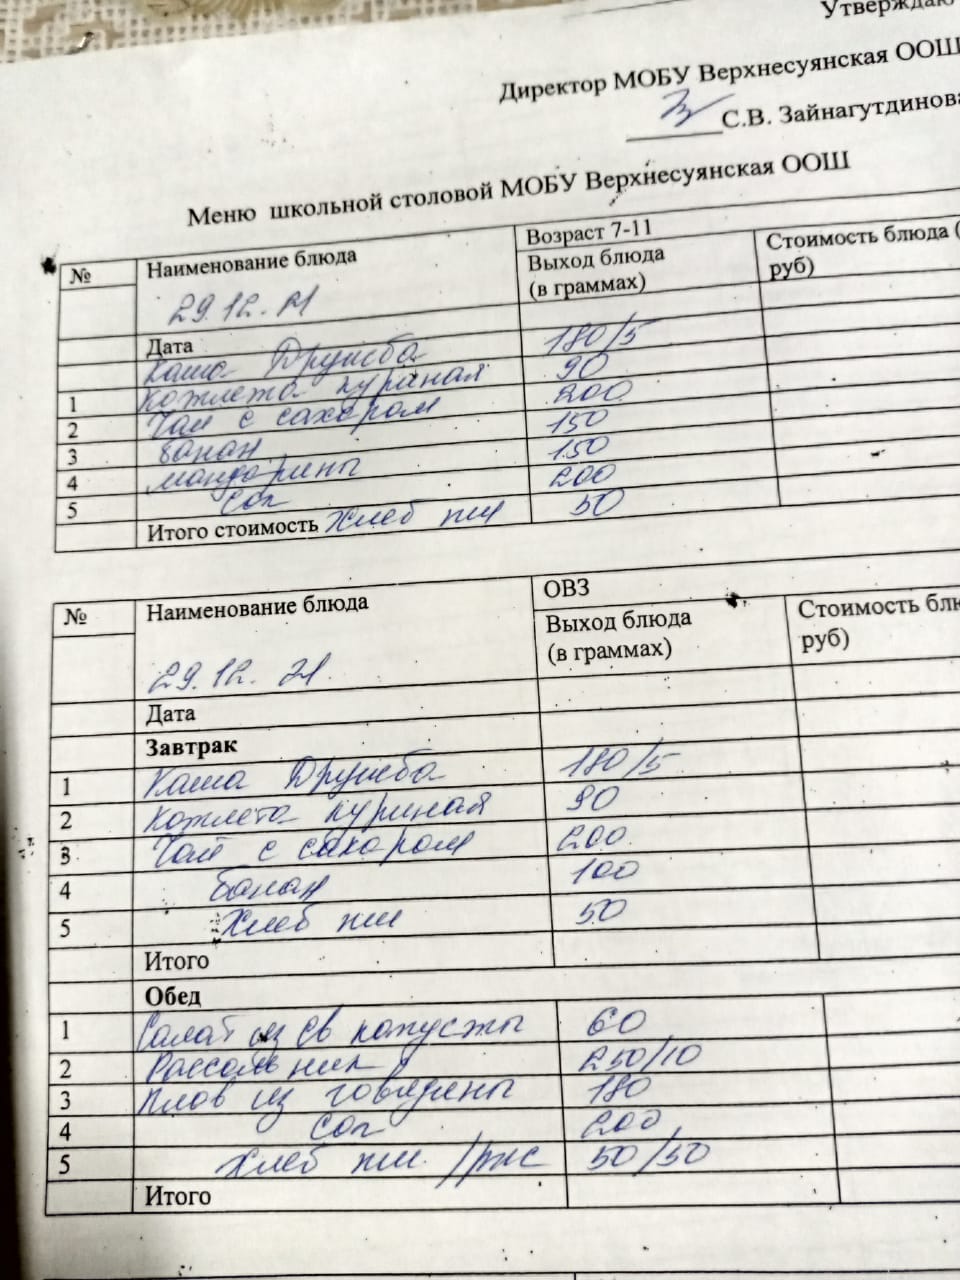 Утверждаю
Директор МОБУ Верхнесуянская ООШ
С.В. Зайнагутдинова
Меню школьной столовой МОБУ Верхнесуянская ООШ
№ Наименование блюда Возраст 7-11
Выход блюда (в граммах) Стоимость блюда ( руб)
29.12.21
Дата
Каша Дружба 180/5
1 Котлета куриная 90
2 Чай с сахаром 200
3 Банан 150
4 мандарины 150
5 Сок 200
Итого стоимость Хлеб пш 50
№ Наименование блюда ОВЗ
Выход блюда (в граммах) Стоимость блю руб)
29.12.21
Дата
Завтрак
1 Каша Дружба 180/5
2 Котлета куриная 90
3 Чай с сахаром 200
4 Банан 100
5 Хлеб пш 50
Итого
Обед
1 Салат из св капусты 60
2 Рассольник 250/10
3 Плов из говядины 180
4 Сок 200
5 Хлеб пш /рж 50/50
Итого